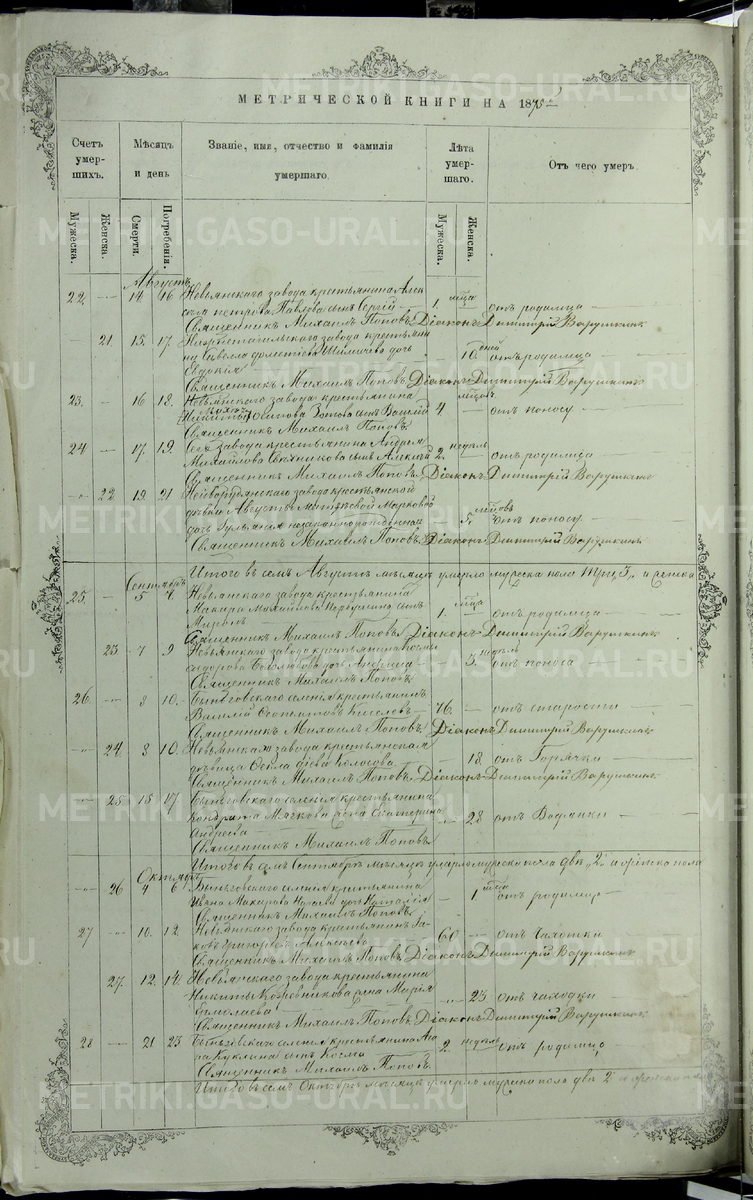 МЕТРИЧЕСКОЙ КНИГИ НА 187
Счетъ умер-шихъ.
Мѣсяцъ и день
Званіе, имя, отчество и фамилія умершаго.
Лѣта умер-шаго.
Отъ чего умеръ.
Мужеска. Женска. Смерти. Погребенія. Мужеска. Женска.
Августъ
22. 14 16 Невьянскаго завода крестьянина
Петрова Павлова сынъ Сергій 1 мѣсяца отъ родимца
Священникъ Михаилъ Поповъ. Діаконъ Димитрій Варушкинъ
21 15. 17. Нижнетагильскаго завода крестьяни
на дочь 10 дней отъ родимца
Евдокія
Священникъ Михаилъ Поповъ. Діаконъ Димитрій Варушкинъ
23. 16 18. Невьянскаго завода крестьянина
Никиты Зотова сынъ 4 мѣсяцовъ отъ поносу
Священникъ Михаилъ Поповъ
24 17. 19. Сего завода крестьянина Андрея
Михайлова сынъ Алексій 2 недѣль отъ родимца
Священникъ Михаилъ Поповъ. Діаконъ Димитрій Варушкинъ
22. 19. 21 крестьянской
дѣвки Августы Марковой
дочь незаконнорожденная 5 мѣсяцовъ отъ поносу
Священникъ Михаилъ Поповъ. Діаконъ Димитрій Варушкинъ
Итого въ семъ Августѣ мѣсяцѣ умерло мужеска пола три 3, и женска
Сентябрь
25. 5 7 Невьянскаго завода крестьянина
Макара Михайлова сынъ 1 мѣсяца отъ родимца
Священникъ Михаилъ Поповъ. Діаконъ Димитрій Варушкинъ
23 7 9 Невьянскаго завода крестьянина
дочь 3 недѣль отъ поноса
Священникъ Михаилъ Поповъ
26. 8 10. Быньговскаго селенія крестьянинъ
Василій Киселевъ 76 отъ старости
Священникъ Михаилъ Поповъ. Діаконъ Димитрій Варушкинъ
24. 8 10. Невьянскаго завода крестьянская
дѣвица Фекла Колосова 18 отъ Горячки
Священникъ Михаилъ Поповъ. Діаконъ Димитрій Варушкинъ
25 15 17 Быньговскаго селенія крестьянина
Кондрата Мячкова жена Екатерина 28 отъ Водянки
Андреева
Священникъ Михаилъ Поповъ
Итого въ семъ Сентябрѣ мѣсяцѣ умерло мужеска пола два 2 а женска пола
Октябрь
26 4 6 Быньговскаго селенія крестьянина
Ивана Макарова дочь Наталія 1 отъ родимца
Священникъ Михаилъ Поповъ
27 10. 12. Невьянскаго завода крестьянинъ Іа-
ковъ Григорьевъ 60 отъ Чахотки
Священникъ Михаилъ Поповъ. Діаконъ Димитрій Варушкинъ
27. 12. 14. Невьянскаго завода крестьянина
Никиты жена Марія 23 отъ чахотки
Ермолаева
Священникъ Михаилъ Поповъ. Діаконъ Димитрій Варушкинъ
28 21 23 Быньговскаго селенія крестьянина
Куклина сынъ Косма 2 недѣль отъ родимца
Священникъ Михаилъ Поповъ.
Итого въ семъ Октябрѣ мѣсяцѣ умерло мужеска пола два 2 а женска
METRIKI.GASO-URAL.RU